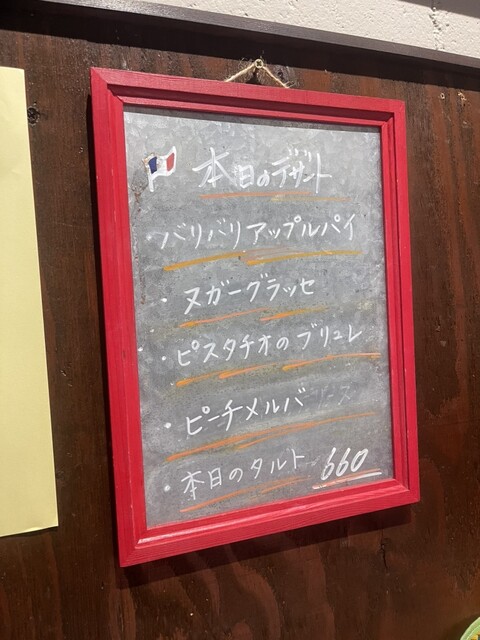 本日のデザート
・バリバリアップルパイ
・ヌガーグラッセ
・ピスタチオのブリュレ
・ピーチメルバ
・本日のタルト 660